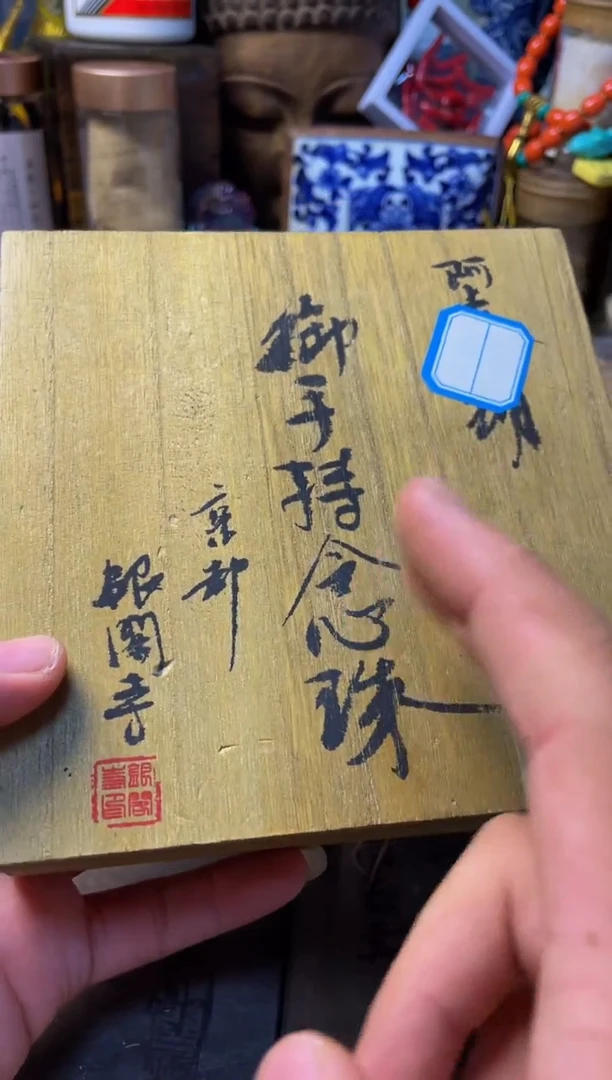 阿
御手持念心珠
京都
銀閣寺
銀閣寺印